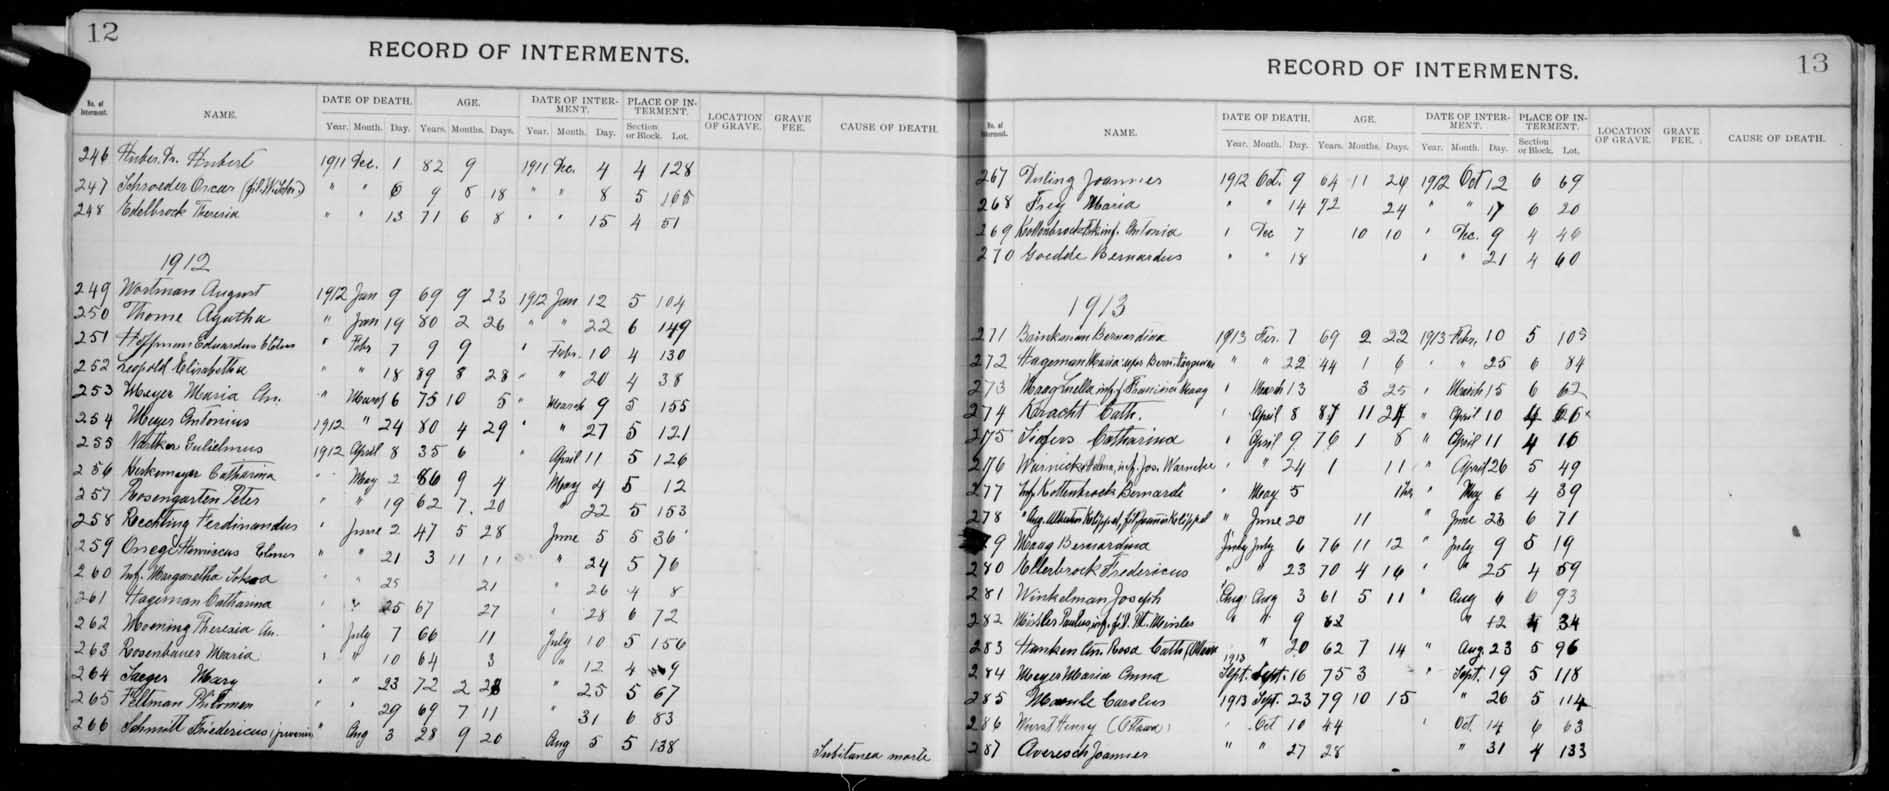 12
RECORD OF INTERMENTS.
No. of Interment. NAME. DATE OF DEATH. AGE. DATE OF INTERMENT. PLACE OF INTERMENT. LOCATION OF GRAVE. GRAVE FEE. CAUSE OF DEATH.
Year. Month. Day. Years. Months. Days. Year. Month. Day. Section or Block. Lot.
246 Huber. Dr. Hubert 1911 Dec. 1 82 9 1911 Dec. 4 4 128
247 Schroeder Oscar " " 6 9 8 18 " " 8 5 105
248 Edelbrock Theresia " " 13 71 6 8 " " 15 4 51
1912
249 Wortman August 1912 Jan 9 69 9 23 1912 Jan 12 5 104
250 Thome Agatha " Jan 19 80 2 26 " " 22 6 149
251 Hoffman Eduardus " Febr 7 9 9 " Febr. 10 4 130
252 Leopold Elisabetha " " 18 89 8 28 " " 20 4 38
253 Meyer Maria An. " March 6 75 10 5 " March 9 5 155
254 Meyer Antonius 1912 " 24 80 4 29 " " 27 5 121
255 Gulielmus 1912 April 8 35 6 " April 11 5 126
256 Catharina " May 2 86 9 4 May 4 5 12
257 Rosengarten Peter " " 19 62 7. 20 " 22 5 153
258 Rechting Ferdinandus " June 2 47 5 28 June 5 5 36
259 Elmer " " 21 3 11 11 " 24 5 76
260 Inf. Margaretha " " 25 21 " 26 4 8
261 Hageman Catharina " " 25 67 27 " 28 6 72
262 Moening Theresia An. " July 7 66 11 July 10 5 156
263 Rosenbauer Maria " " 10 64 3 " 12 4 9
264 Jaeger Mary " " 23 72 2 28 " 25 5 67
265 Feltman Philomen " " 29 69 7 11 " 31 6 83
266 Schmitt Friedericus (juvenis) " Aug 3 28 9 20 Aug 5 5 138 Subitanea morte
13
RECORD OF INTERMENTS.
No. of Interment. NAME. DATE OF DEATH. AGE. DATE OF INTERMENT. PLACE OF INTERMENT. LOCATION OF GRAVE. GRAVE FEE. CAUSE OF DEATH.
Year. Month. Day. Years. Months. Days. Year. Month. Day. Section or Block. Lot.
267 Duling Joannes 1912 Oct. 9 64 11 26 1912 Oct 12 6 69
268 Frey Maria " " 14 72 24 " " 17 6 20
269 inf. Antonia " Dec 7 10 10 " Dec. 9 4 46
270 Goedde Bernardus " " 18 " " 21 4 60
1913
271 Brinkman Bernardina 1913 7 69 2 22 1913 Febr. 10 5 105
272 Hageman Maria uxor Bern. " " 22 44 1 6 " " 25 6 84
273 Maag inf. Maag " March 13 3 25 " March 15 6 62
274 Kracht Cath. " April 8 87 11 24 " April 10 4 66
275 Siefers Catharina " April 9 76 1 8 " April 11 4 16
276 inf. Jos. Warneke " " 24 1 11 " April 26 5 49
277 Inf. Kottenbrock Bernardi " May 5 " May 6 4 39
278 Aug. Albertus Kolippel, fil. Kolippel " June 20 11 " June 23 6 71
279 Maag Bernardina July July 6 76 11 12 " July 9 5 19
280 Ellerbrock Fredericus " " 23 70 4 16 " " 25 4 59
281 Winkelman Joseph Aug Aug 3 61 5 11 " Aug 6 6 93
282 Meisler Paulus, inf. fil. M. Meisler " " 9 " 12 4 34
283 Hanken An. Rosa " 20 62 7 14 " Aug. 23 5 96
284 Meyer Maria Anna 1913 Sept. Sept. 16 75 3 " Sept. 19 5 118
285 Carolus 1913 Sept. 23 79 10 15 " 26 5 114
286 Wurst Henry (Ottawa) " Oct 10 44 " Oct. 14 6 63
287 Averesch Joannes " " 27 28 " 31 4 133